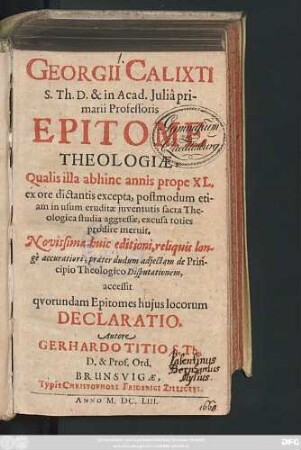 GEORGII CALIXTI
S. Th. D. & in Acad. Juliâ pri-
marii Professoris
EPITOME
THEOLOGIÆ
Qualis illa abhinc annis prope XL,
ex ore dictantis excepta, postmodum eti-
am in usum eruditæ juventutis sacra The-
ologica studia aggressæ, excusa toties
prodire meruit.
Novissima huic editioni, reliquis lon-
gè accuratiori, præter dudum adjectam de Prin-
cipio Theologico Disputationem,
accessit
qvorundam Epitomes hujus locorum
DECLARATIO.
Autore
GERHARDO TITIO S. Th.
D. & Prof. Ord.
BRUNSVIGÆ,
Typis CHRISTOPHORI FRIDERICI ZILLIGERI.
ANNO M. DC. LIII.
Gymnasium
Valentinus
Mylius